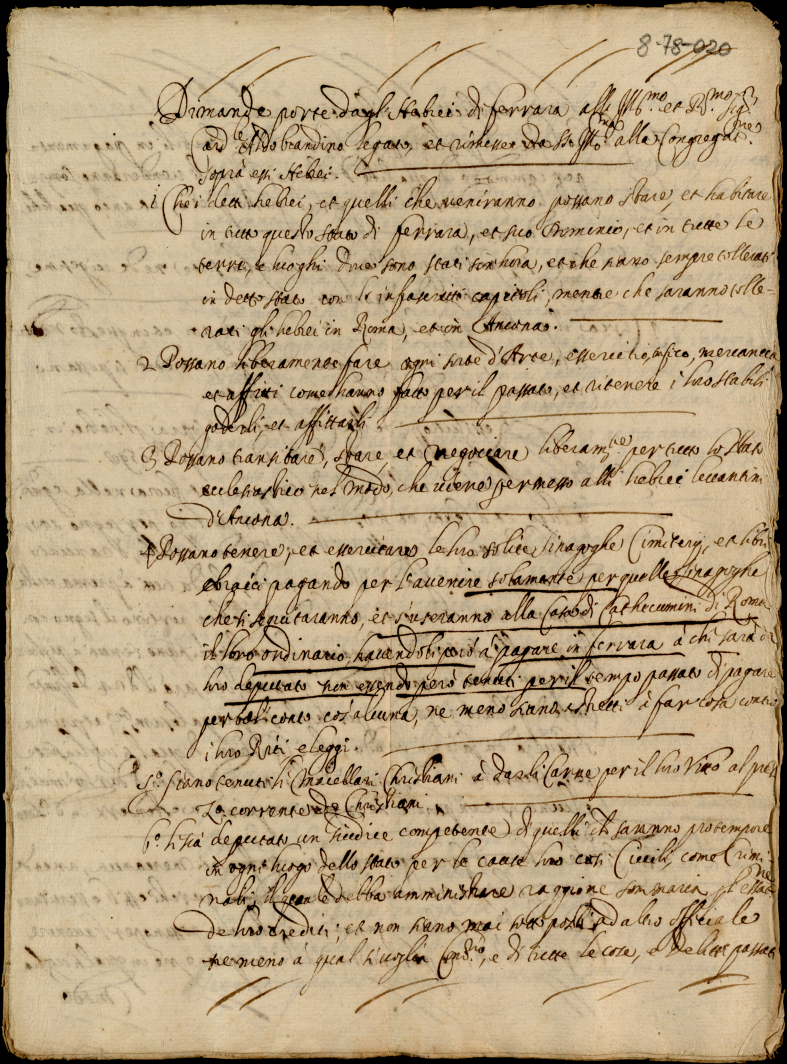 8-78-020
Dimande porte dagli Hebrei di ferrara, all Ill.mo et R.mo Sig.r
Card.le Aldobrandino legato, et rimesse da S.S. Ill.ma alla Congregat.ne
sopra essi Hebrei.
1 Che i detti hebrei, et quelli che veniranno possano stare et habitare
in tutto questo stato di ferrara, et suo Dominio, et in tutte le
terre, e luoghi dove sono stati sin hora, et che siano sempre tollerati
in detto stato con li infrascritti capitoli, mentre che saranno tolle-
rati gli hebrei in Roma, et in Ancona.
2 Possano liberamente fare ogni sorte d'Arte, essercitio, trafico, mercancia
et affitti come hanno fatto per il passato, et ritenere i loro stabili
goderli, et affittarli.
3 Possano transitare, stare et negociare liberam.te per tutto lo stato
ecclesiastico nel modo, che viene permesso alli hebrei levantini
d'Ancona.
4 Possano tenere, et essercitare le loro solite sinagoghe Cimiterij, et libri
ebraici pagando per l'avenire solamente per quelle sinagoghe
che si seguitaranno, et s'useranno alla Casa di Cathecumini di Roma
il loro ordinario, havendosi però a pagare in ferrara à chi sarà da
loro deputato non essendo però tenuti per il tempo passato di pagare
per tal conto cos'alcuna, ne meno siano astretti à far cosa contro
i loro Riti e leggi.
5.o Siano tenuti li Macellari Christiani à darli Carne per il loro Vitto al prez
zo corrente de Christiani.
6.o li sia deputato un Giudice competente di quelli che saranno pro tempore
in ogni luogo dello stato per le cause loro così Civili, come Crimi-
nali, il quale debba amministrare raggione sommaria
de loro crediti; et non siano mai sottoposti ad altro officiale
ne meno à qual si voglia, e di tutte le cose, e delitti passati